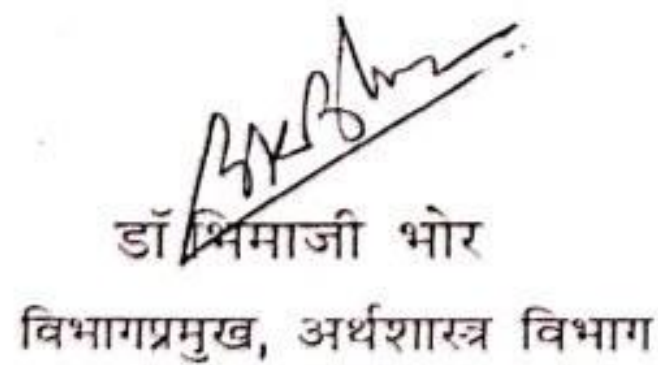 डॉ भिमाजी भोर
विभागप्रमुख, अर्थशास्त्र विभाग